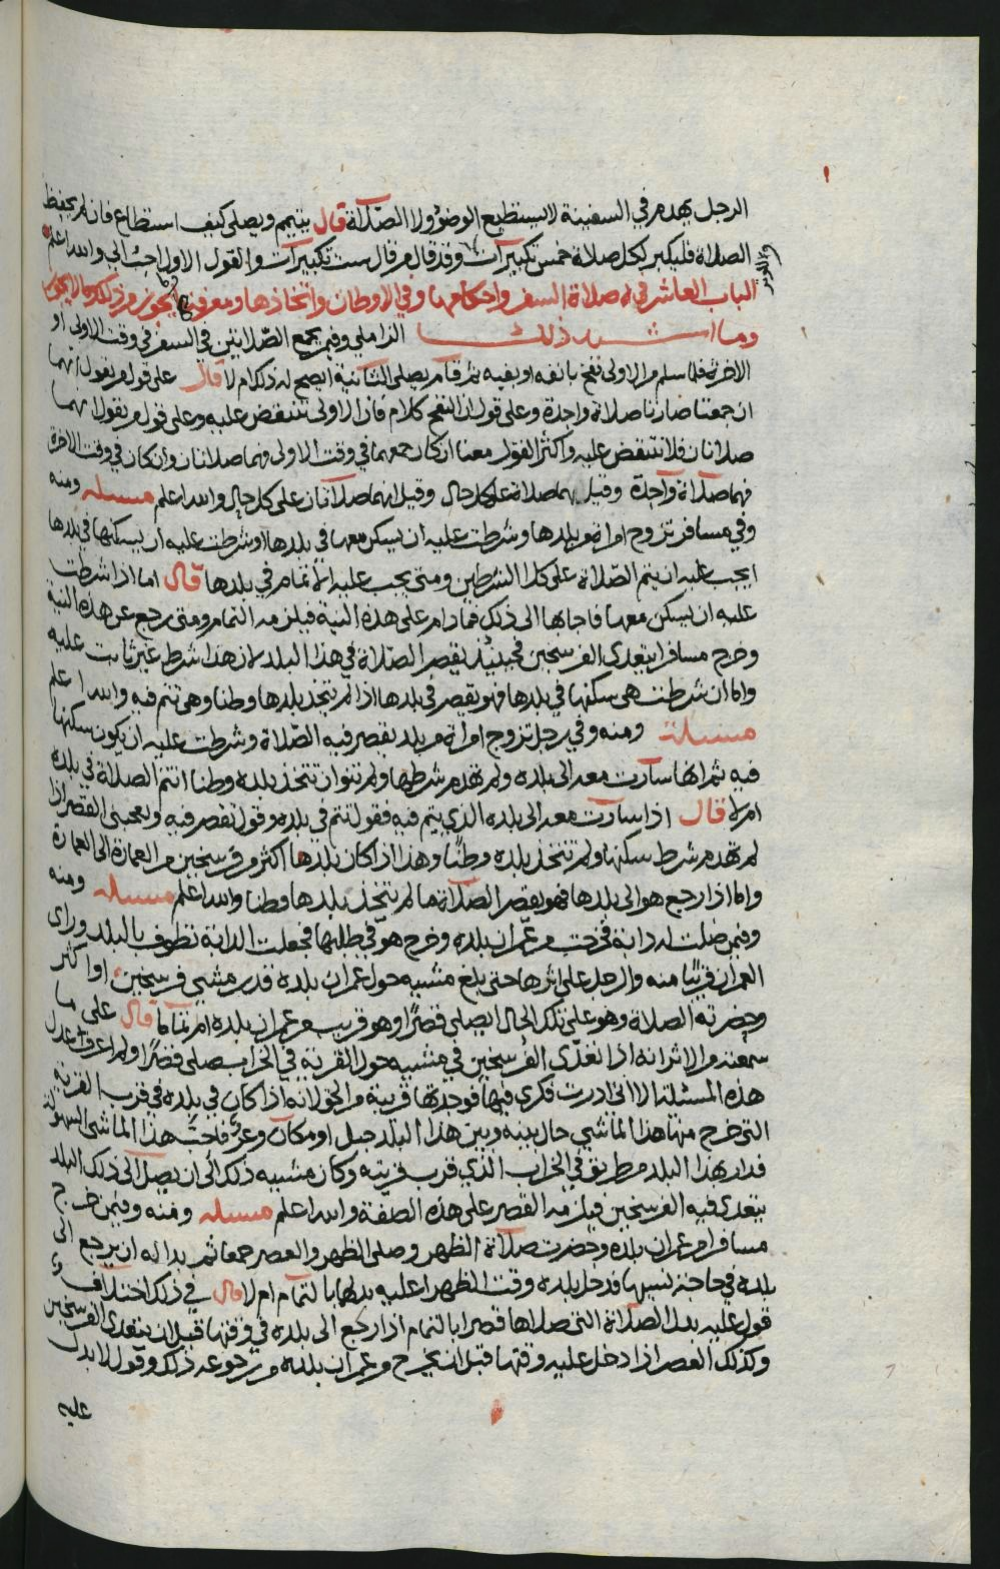 الرجل يهدم في السفينة لا يستطيع الوضوء ولا الصلاة قال يتيمم ويصلي كيف استطاع فان لم يحفظ
الصلاة فليكبر لكل صلاة خمس تكبيرات وقد قال من قال ست تكبيرات والقول الاول احب الي والله اعلم
الباب العاشر في صلاة السفر واحكامها وفي الاوطان واتخاذها ومعرفة ما يجوز من ذلك وما لا يجوز
وما اشبه ذلك الزاملي وفيمن يجمع الصلاتين في السفر في وقت الاولى او
الاخرة فلما سلم من الاولى نفخ بانفه او بفيه ثم قام يصلي الثانية ايصح له ذلك ام لا قال على قول من يقول انهما
ان جمعتا صارتا صلاة واحدة وعلى قول ان النفخ كلام فان الاولى تنتقض عليه وعلى قول من يقول انهما
صلاتان فلا تنتقض عليه واكثر القول معنا ان كان جمعهما في وقت الاولى فهما صلاتان وان كان في وقت الاخرة
فهما صلاة واحدة وقيل انهما صلاة على كل حال وقيل انهما صلاتان على كل حال والله اعلم مسئلة ومنه
وفي مسافر تزوج امراة من بلدها وشرطت عليه ان يسكن معها في بلدها او شرطت عليه ان يسكنها في بلدها
ايجب عليه ان يتم الصلاة على كلا الشرطين ومتى يجب عليه الاتمام في بلدها قال اما اذا شرطت
عليه ان يسكن معها فاجابها الى ذلك فما دام على هذه النية فيلزمه التمام ومتى رجع عن هذه النية
وخرج مسافرا يتعدى الفرسخين فحينئذ يقصر الصلاة في هذا البلد لان هذا شرط غير ثابت عليه
واما ان شرطت هي سكنها في بلدها فهو يقصر في بلدها اذا لم يتخذ بلدها وطنا وهي تتم فيه والله اعلم
مسئلة ومنه وفي رجل تزوج امراة من بلد يقصر فيه الصلاة وشرطت عليه ان يكون سكنها
فيه ثم انها سارت معه الى بلده ولم تهدم شرطها ولم تنو ان تتخذ بلده وطنا اتتم الصلاة في بلده
ام لا قال اذا سارت معه الى بلده الذي يتم فيه فقول تتم في بلده وقول تقصر فيه ويعجبني القصر اذا
لم تهدم شرط سكنها ولم تتخذ بلده وطنا وهذا اذا كان بلدها اكثر من فرسخين من العمارة الى العمارة
واما اذا رجع هو الى بلدها فهو يقصر الصلاة ما لم يتخذ بلدها وطنا والله اعلم مسئلة ومنه
وفيمن ضلت له دابة فخرجت من عمران بلده وخرج هو في طلبها فجعلت الدابة تطوف بالبلد وراى
العمران قريبا منه والرجل على اثرها حتى بلغ مشيه حول عمران بلده قدر مشي فرسخين او اكثر
وحضرته الصلاة وهو على تلك الحال ايصلي قصرا وهو قريب من عمران بلده ام تماما قال على ما
سمعته من الاثر انه اذا تعدى الفرسخين في مشيه حول القرية في الخراب صلى قصرا ولم اعرف عدل
هذه المسئلة الا اني ادرت فكري فيها فوجدتها قريبة من الحق لانه اذا كان في بلده في قرب القرية
التي خرج منها هذا الماشي حال بينه وبين هذا البلد جبل او مكان وعر فلحب هذا الماشي السهولة
فدار بهذا البلد من طريق في الخراب الذي قرب قريته وكان مشيه ذلك الى ان يصل الى ذلك البلد
يتعدى فيه الفرسخين فيلزمه القصر على هذه الصفة والله اعلم مسئلة ومنه وفيمن خرج
مسافرا من عمران بلده وحضرت صلاة الظهر وصلى الظهر والعصر جمعا ثم بدا له ان يرجع الى
بلده في حاجة نسيها فدخل بلده وقت الظهر اعليه بدلها بالتمام ام لا قال في ذلك اختلاف
قول عليه بدل الصلاة التي صلاها قصرا بالتمام اذا رجع الى بلده في وقتها قبل ان يتعدى الفرسخين
وكذلك العصر اذا دخل عليه وقتها قبل ان يخرج من عمران بلده من رجوعه ذلك وقول لا بدل
عليه